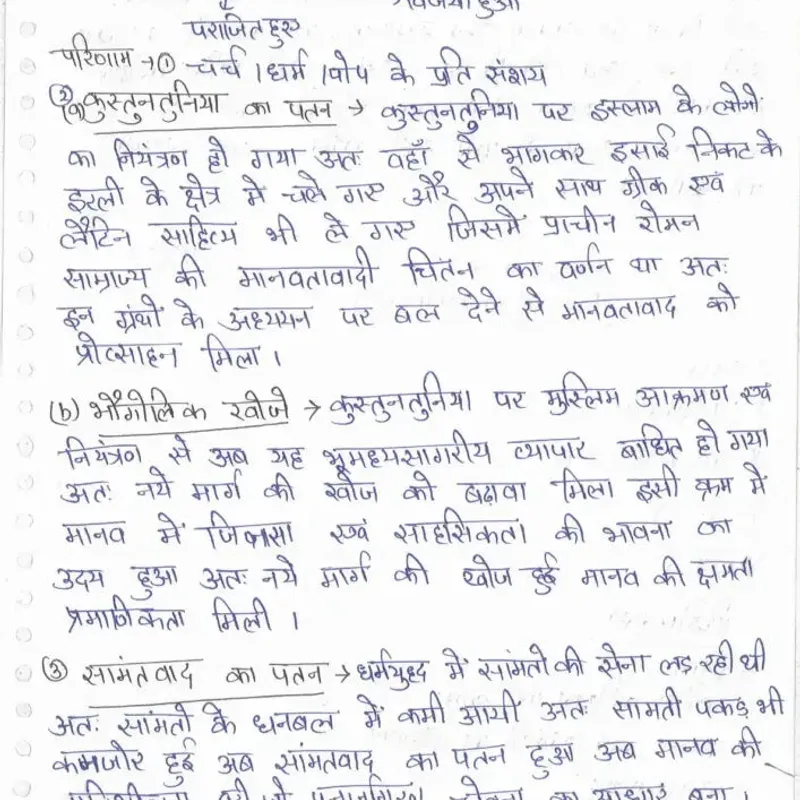 पराजित हुए
परिणाम → ① चर्च । धर्म । पोप के प्रति संशय
② (a) कुस्तुनतुनिया का पतन → कुस्तुनतुनिया पर इस्लाम के लोगों
का नियंत्रण हो गया अतः वहाँ से भागकर इसाई निकट के
इटली के क्षेत्र में चले गए और अपने साथ ग्रीक एवं
लैटिन साहित्य भी ले गए जिसमें प्राचीन रोमन
साम्राज्य की मानवतावादी चिंतन का वर्णन था अतः
इन ग्रंथो के अध्ययन पर बल देने से मानवतावाद को
प्रोत्साहन मिला ।
(b) भौगोलिक खोजे → कुस्तुनतुनिया पर मुस्लिम आक्रमण एवं
नियंत्रण से अब यह भूमध्यसागरीय व्यापार बाधित हो गया
अतः नये मार्ग की खोज को बढ़ावा मिला इसी क्रम में
मानव में जिज्ञासा एवं साहसिकता की भावना का
उदय हुआ अतः नये मार्ग की खोज हुई मानव की क्षमता
प्रमाणिकता मिली ।
③ सामंतवाद का पतन → धर्मयुध्द में सांमतो की सेना लड़ रही थी
अतः सांमतो के धनबल में कमी आयी अतः सामंती पकड़ भी
कमजोर हुई अब सांमतवाद का पतन हुआ अब मानव की
चेतना का आधार बना ।